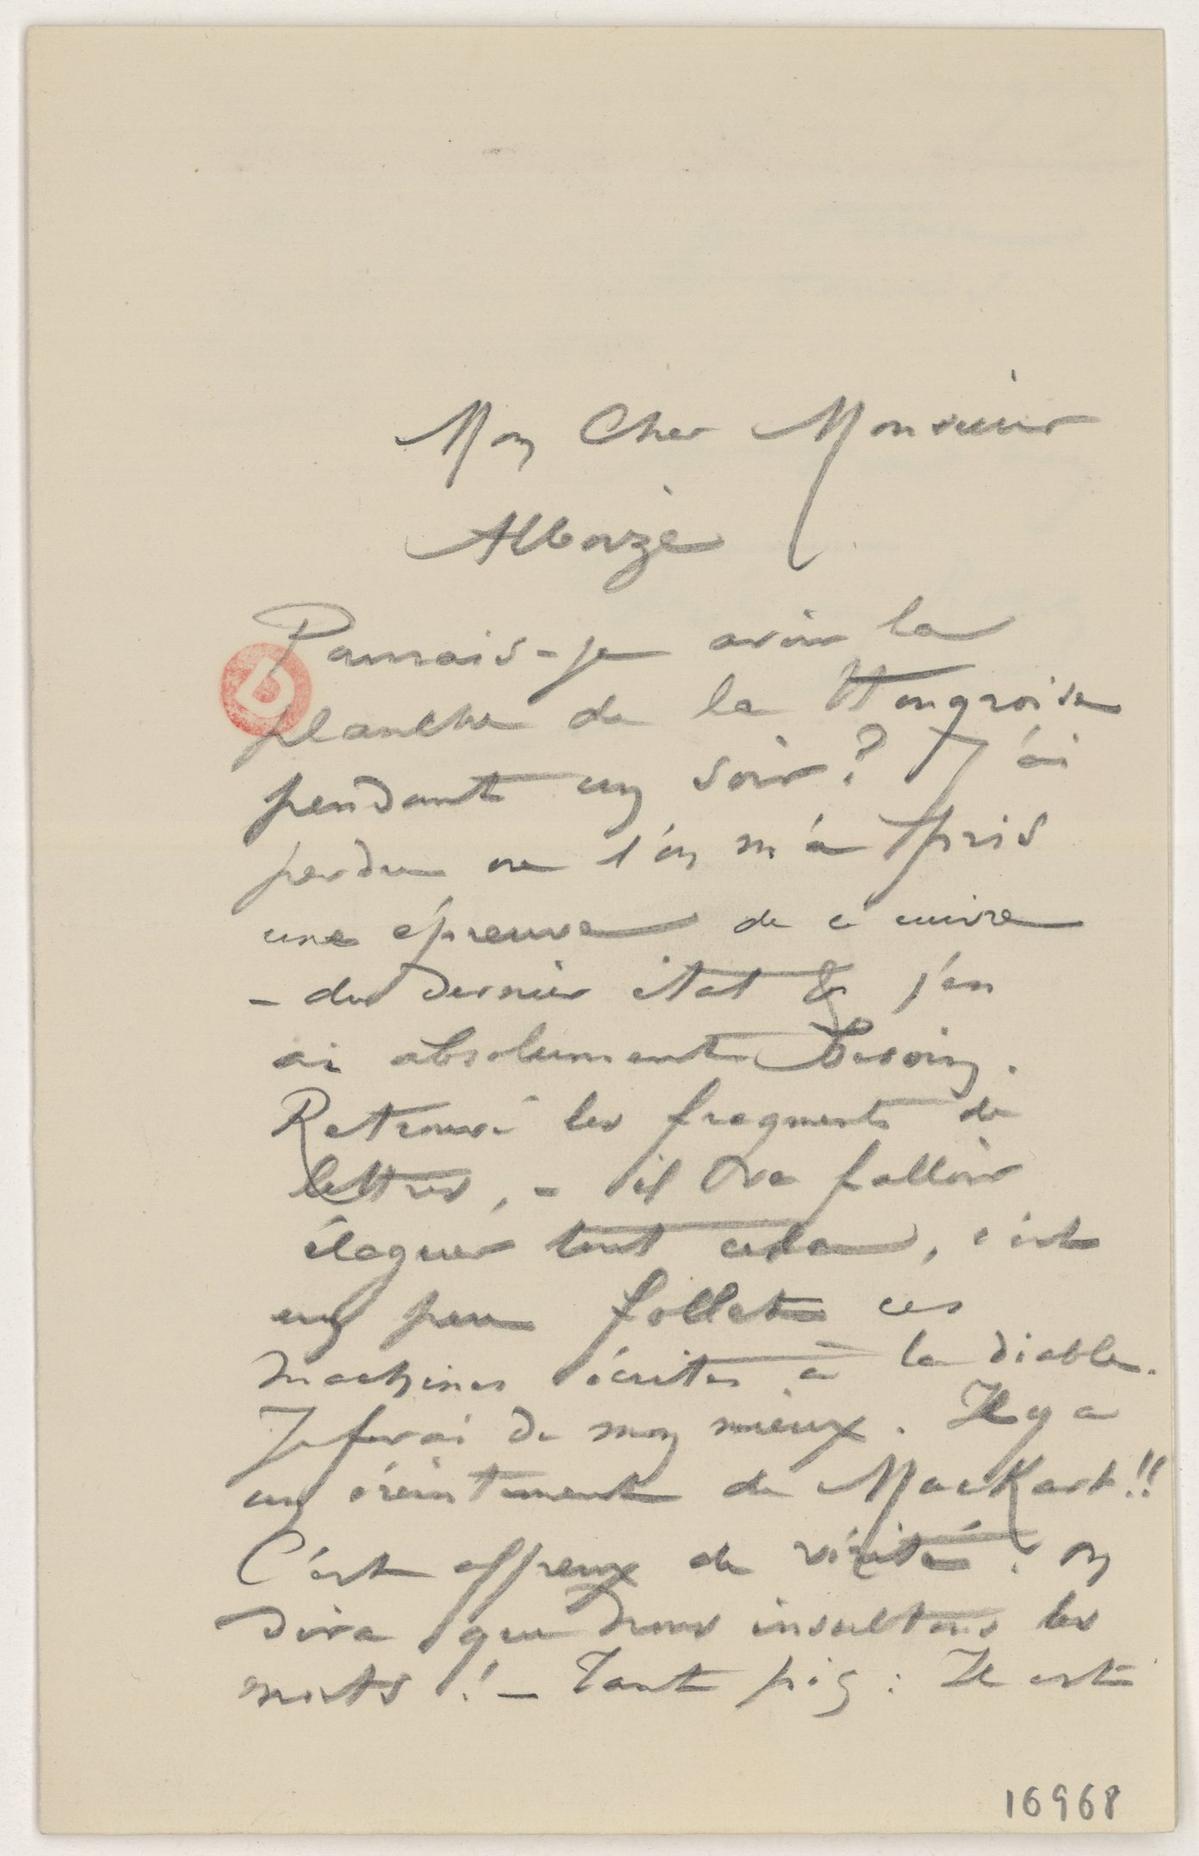 Mon Cher Monsieur
Alboize
Pourrais-je avoir la
planche de la Hongroise
pendant un soir? J'ai
perdu ou l'on m'a pris
une épreuve de ce cuivre
– du dernier état & j'en
ai absolument besoin.
Retrouvé les fragments de
lettres, – il va falloir
élaguer tout cela, c'est
un peu follet ces
machines écrites à la diable.
Je ferai de mon mieux. Il y a
un éreintement de MacKart!!
C'est affreux de vérité. On
dira que nous insultons les
morts! – Tant pis: Il est
D
16968